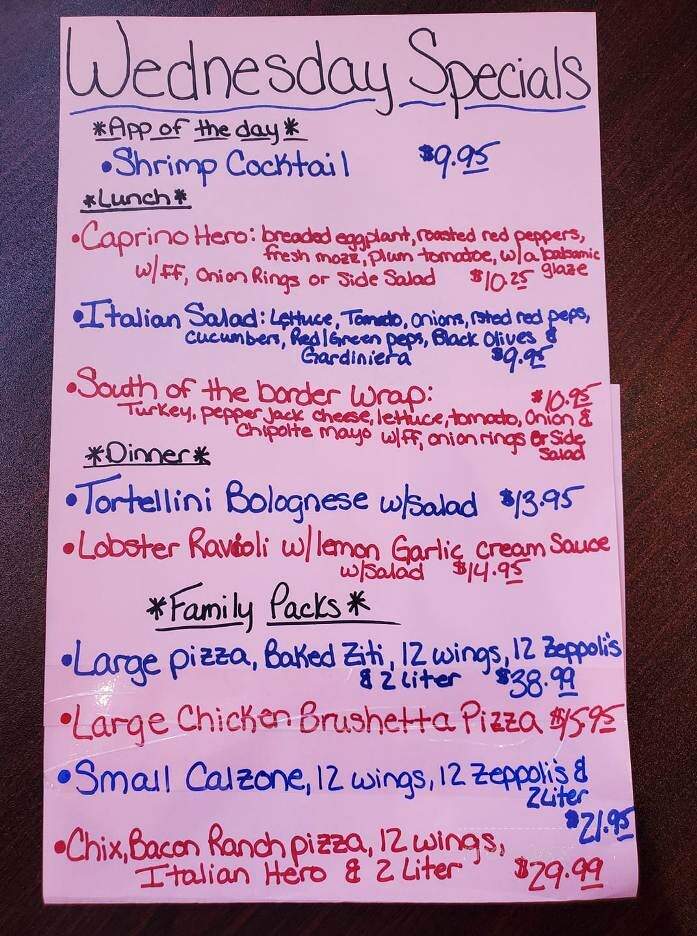 Wednesday Specials
*App of the day*
•Shrimp Cocktail $9.95
*Lunch*
•Caprino Hero: breaded eggplant, roasted red peppers,
fresh mozz, plum tomatoe, w/a balsamic
glaze
w/ff, Onion Rings or Side Salad $10.25
•Italian Salad: Lettuce, Tomato, onions, rsted red peps,
cucumbers, Red/Green peps, Black Olives &
Giardiniera $9.95
•South of the border Wrap: $10.95
Turkey, pepper jack cheese, lettuce, tomato, Onion &
Chipolte mayo w/ff, onion rings or Side
Salad
*Dinner*
•Tortellini Bolognese w/Salad $13.95
•Lobster Ravioli w/lemon Garlic cream Sauce
w/Salad $14.95
*Family Packs*
•Large pizza, Baked Ziti, 12 wings, 12 Zeppoli's
& 2 Liter $38.99
•Large Chicken Brushetta Pizza $15.95
•Small Calzone, 12 wings, 12 Zeppoli's &
2 Liter
$21.95
•Chix, Bacon Ranch pizza, 12 wings,
Italian Hero & 2 Liter $29.99